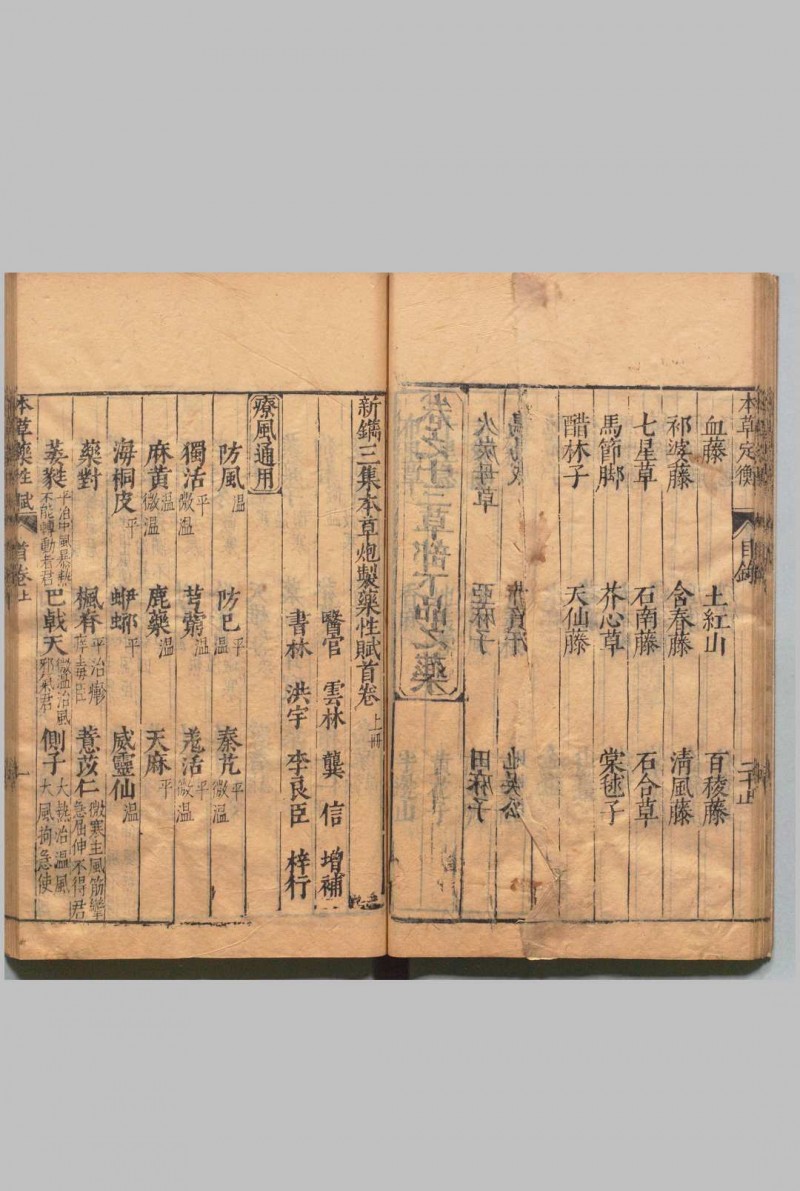 本草定衡 目錄 二十止
血藤 土紅山 百稜藤
祁婆藤 含春藤 清風藤
七星草 石南藤 石合草
馬節脚 芥心草 棠毬子
醋林子 天仙藤
新鐫三集本草炮製藥性賦首卷 上冊
醫官 雲林 龔 信 增補
書林 洪宇 李良臣 梓行
療風通用
防風 溫 防巳 平溫 秦艽 平微溫
獨活 平微溫 芎藭 溫 羌活 平微溫
麻黃 溫微溫 鹿藥 溫 天麻 平
海桐皮 平 蚵蚾 平 威靈仙 溫
藥對 楓香 平治癮疹毒臣 薏苡仁 微寒主風筋攣急屈伸不得君
萎蕤 平治中風暴熱不能轉動者君 巴戟天 微溫治風邪氣君 側子 大熱治溫風大風拘急使
本草藥性賦 首卷上 一